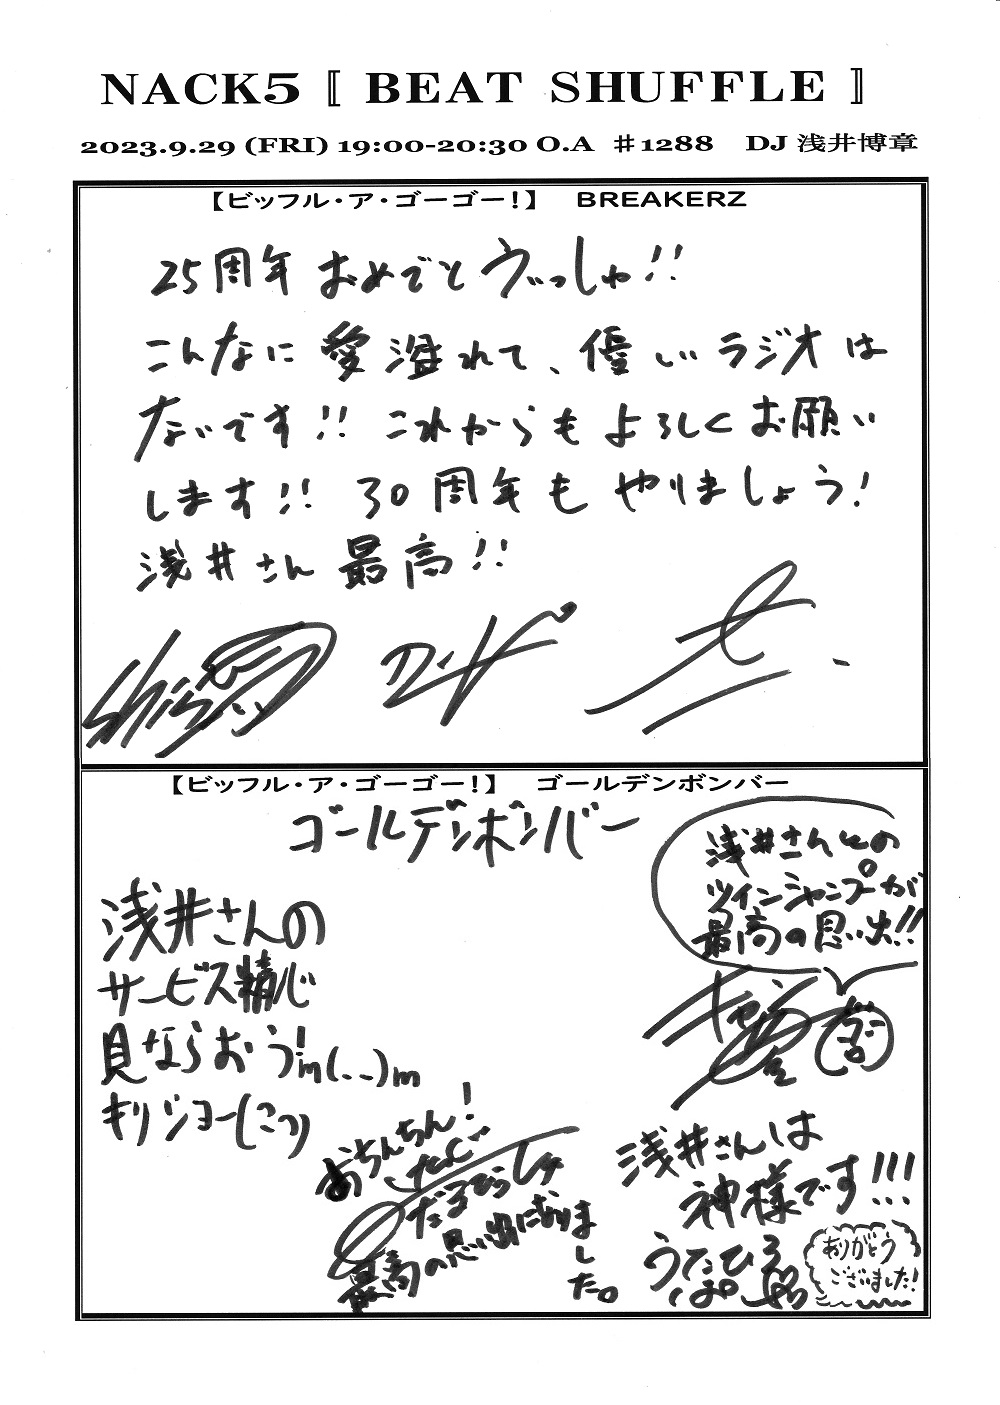 NACK5 〚 BEAT SHUFFLE 〛
2023.9.29 (FRI) 19:00-20:30 O.A ♯1288 DJ 浅井博章
【ビッフル・ア・ゴーゴー！】 BREAKERZ
25周年 おめでとヴぃっしゅ!!
こんなに 愛 溢れて、優しいラジオは
ないです!! これからもよろしくお願い
します!! 30周年も やりましょう!
浅井さん 最高!!
【ビッフル・ア・ゴーゴー！】 ゴールデンボンバー
ゴールデンボンバー
浅井さんとの
ツインジャンプが
最高の思い出!!
浅井さんの
サービス精神
見ならおう!m(. .)m
キリショー
おちんちん!
最高の思い出になりま
した。
浅井さんは
神様です!!!
うたひろ
ありがとう
ございました!